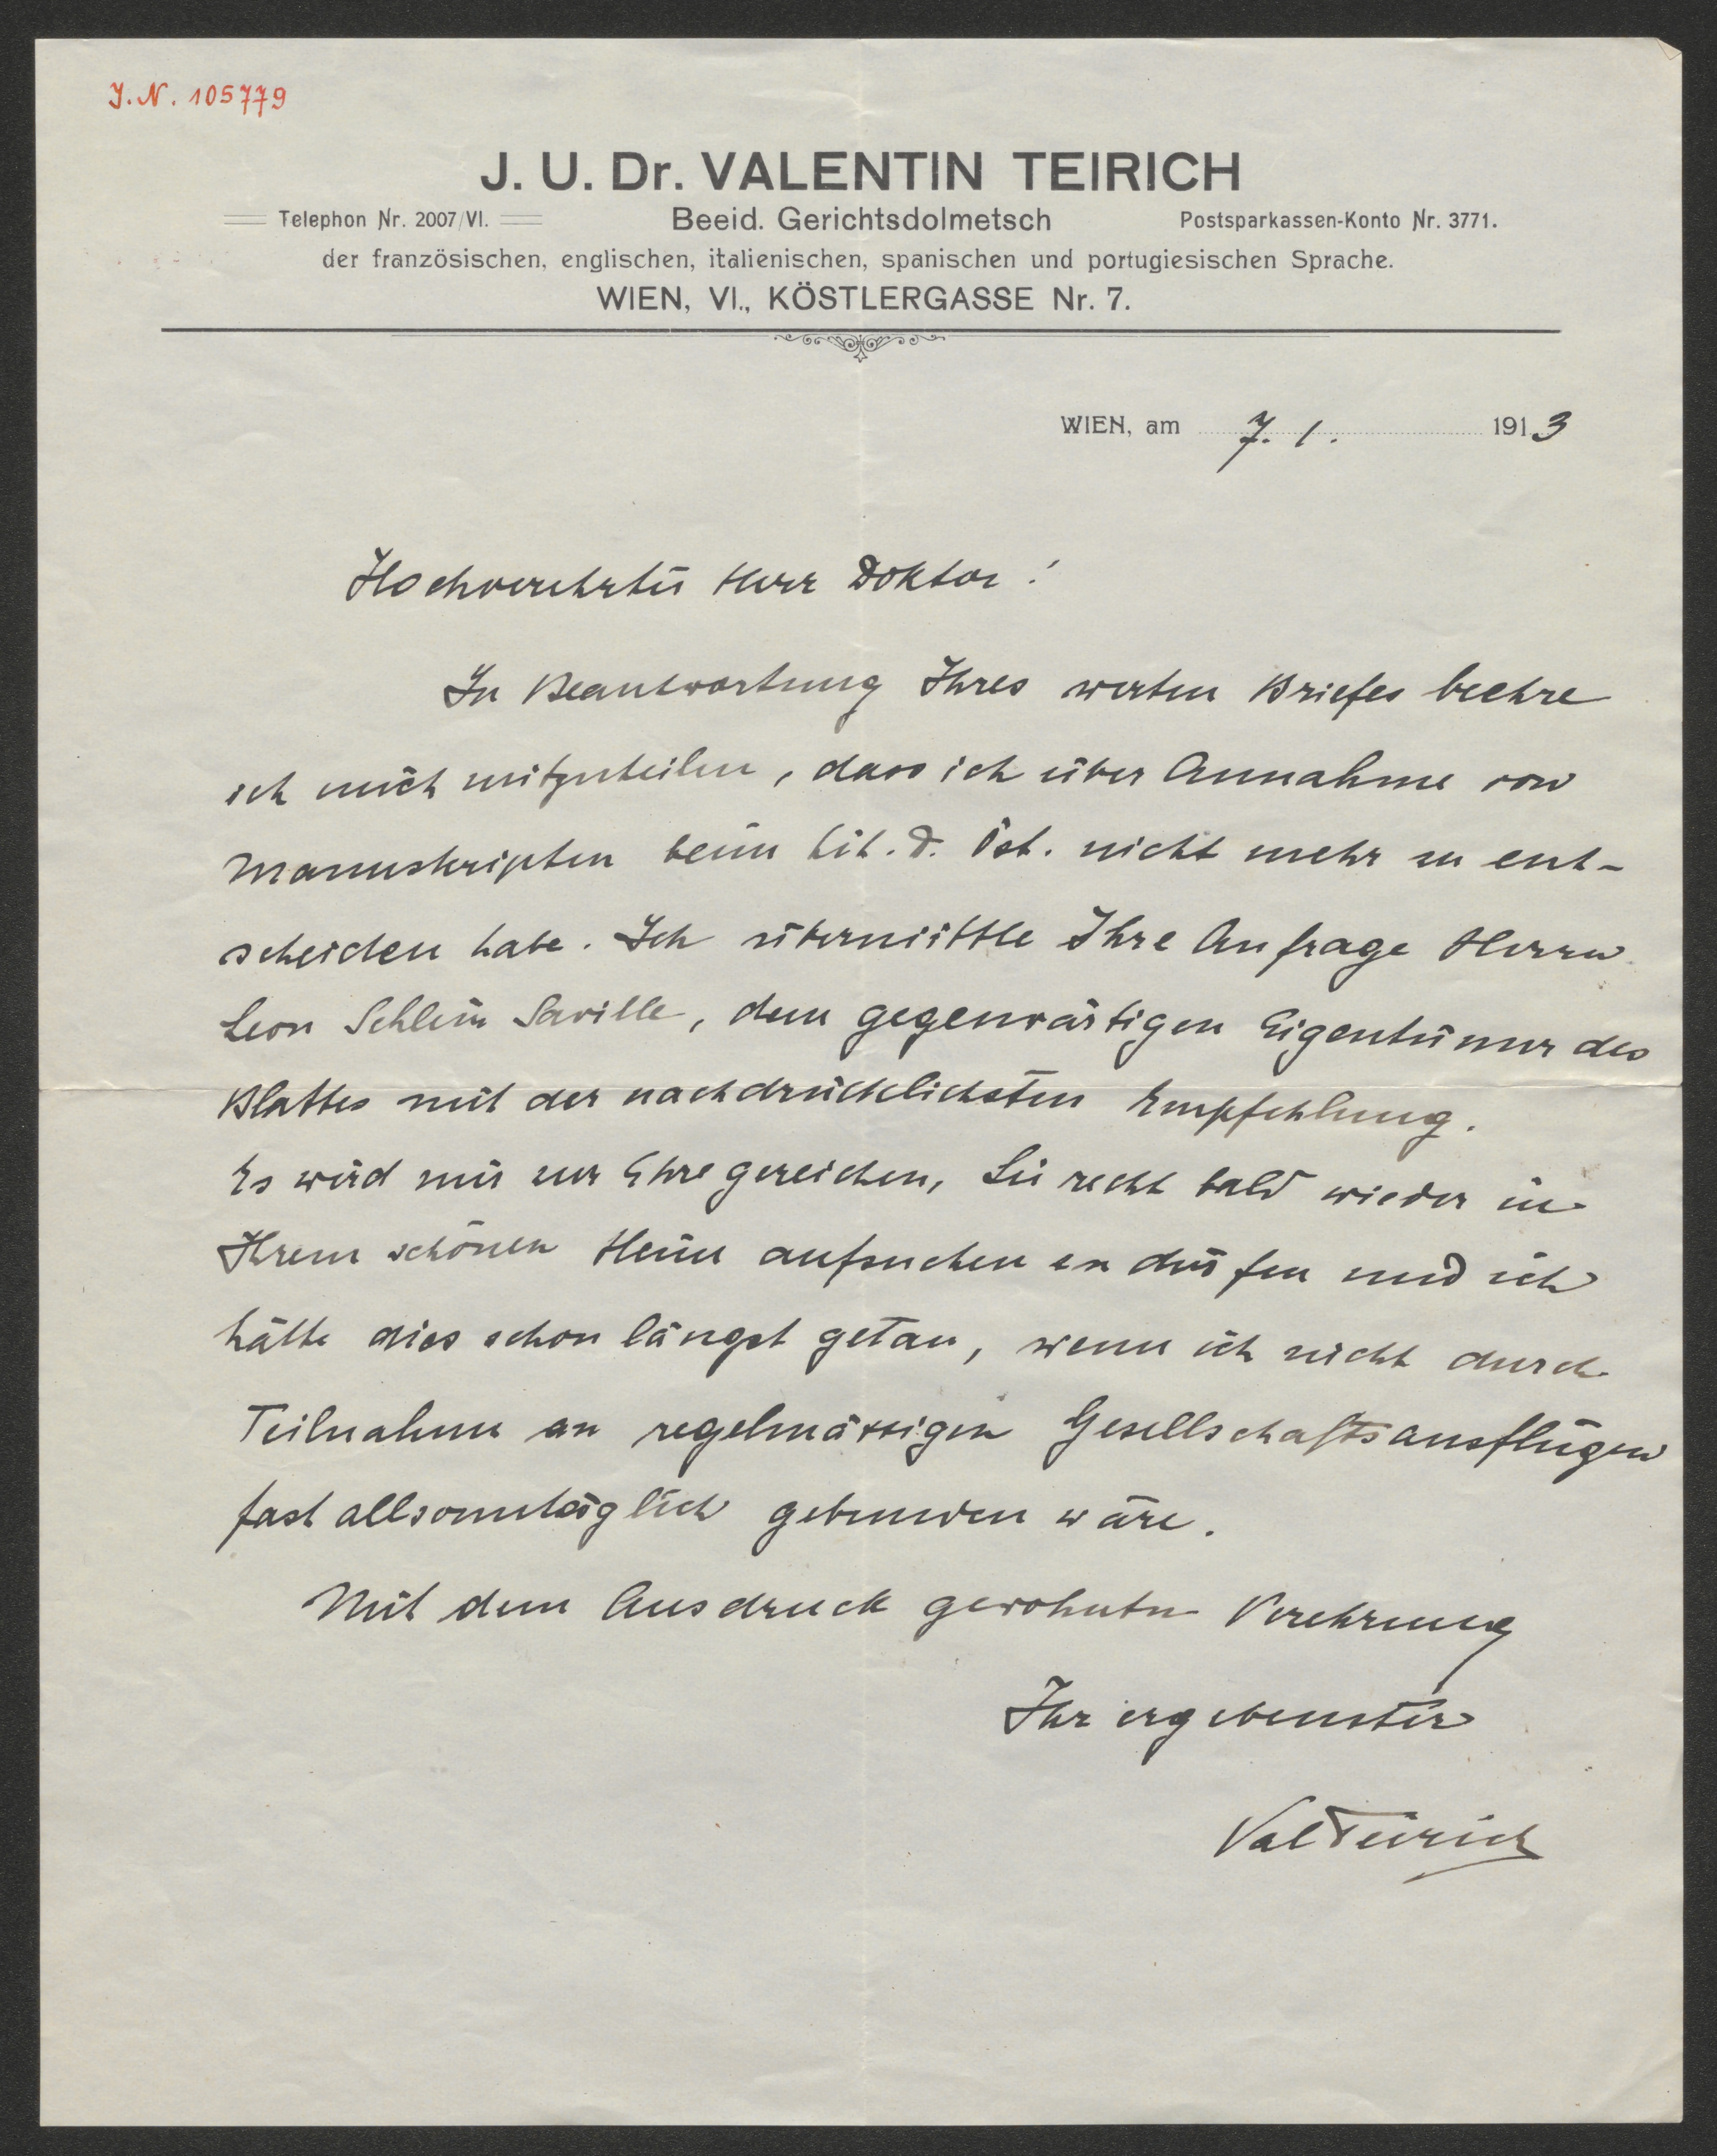 J. N. 105779
J. U. Dr. VALENTIN TEIRICH
Telephon Nr. 2007/VI. Beeid. Gerichtsdolmetsch Postsparkassen-Konto Nr. 3771.
der französischen, englischen, italienischen, spanischen und portugiesischen Sprache.
WIEN, VI., KÖSTLERGASSE Nr. 7.
WIEN, am 7. 1. 1913
Hochverehrter Herr Doktor!
In Beantwortung Ihres werten Briefes beehre
ich mich mitzuteilen, dass ich über Annahme von
Manuskripten beim Lit. D. Öst. nicht mehr zu ent-
scheiden habe. Ich übermittle Ihre Anfrage Herrn
Leon Schlein Saville, dem gegenwärtigen Eigentümer des
Blattes mit der nachdrücklichsten Empfehlung.
Es wird mir zur Ehre gereichen, Sie recht bald wieder in
Ihrem schönen Heim aufsuchen zu dürfen und ich
hätte dies schon längst getan, wenn ich nicht durch
Teilnahme an regelmässigen Gesellschaftsausflügen
fast allsonntäglich gebunden wäre.
Mit dem Ausdruck gewohnter Verehrung
Ihr ergebenster
Val Teirich